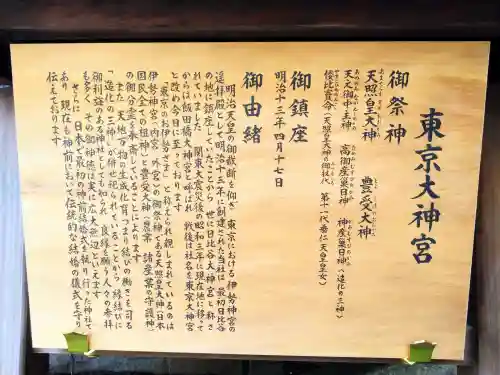 東京大神宮
御祭神
天照皇大神　豊受大神
天之御中主神　高御産巣日神　神産巣日神（造化の三神）
倭比賣命（天照皇大神の御杖代　第十一代垂仁天皇皇女）
御鎮座
明治十三年四月十七日
御由緒
明治天皇の御裁断を仰ぎ　東京における　伊勢神宮の
遥拝殿として明治十三年に創建された当社は　最初日比谷
の地に鎮座していたことから　世に日比谷大神宮と称さ
れていました　関東大震災後の昭和三年に現在地に移って
からは飯田橋大神宮と呼ばれ　戦後は社名を東京大神宮
と改め今日に至っております
「東京のお伊勢さま」と称えられ親しまれているのは
伊勢神宮（内宮　外宮）の御祭神である天照皇大神（日本
国民全ての祖神）と豊受大神（農業　諸産業の守護神）
の御分霊を奉斎していることによります
また　天地万物の生成化育つまり結びの働きを司る
「造化の三神」が併せ祀られていることから　縁結びに
御利益のある神社としても知られ　良縁を願う人々の参拝
も多く　その御神徳は実に広大無辺といえます
さらには　日本で最初の神前結婚式を執り行った神社で
あり　現在も神前において伝統的な結婚の儀式を守り
伝えております